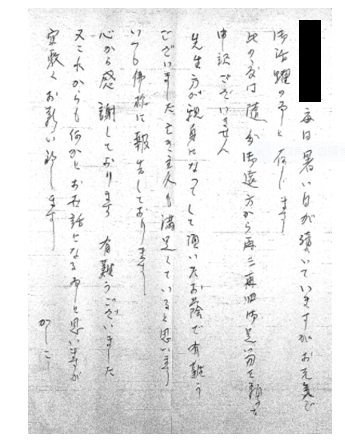 毎日暑い日が続いていますがお元気で
御活躍の事と存じます
此の度は随分御遠方から再三再四御足労を頼って
申訳ございません
先生方が親身になって頂いたお蔭で有難う
ございました亡き主人も満足していると思います
いつも佛様に報告しております
心から感謝しております 有難うございました
又これからも何かとお世話になる事と思いますが
宜敷くお願い致します
かしこ